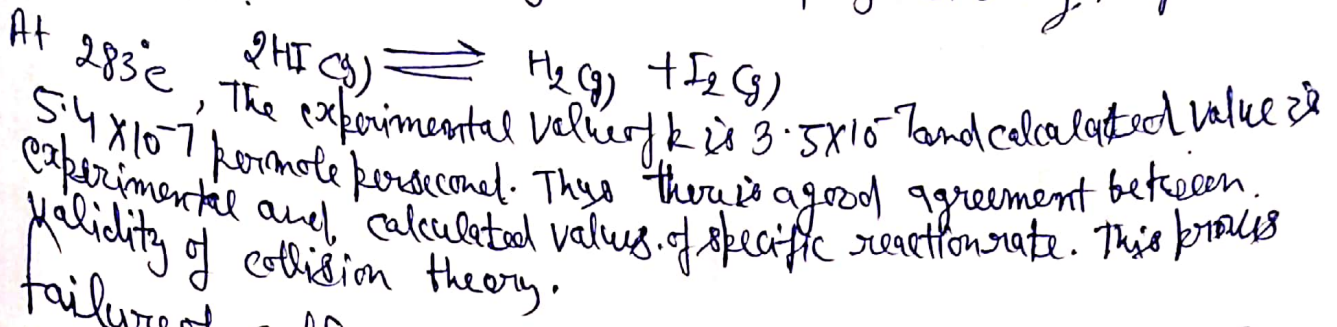 At 283°C 2HI (g) ⇌ H2 (g) + I2 (g)
, The experimental value of k is 3.5X10-7 and calculated value is
5.4 X10-7 per mole per second. Thus there is a good agreement between
experimental and calculated values. of specific reaction rate. This proves
validity of collision theory.
failure of